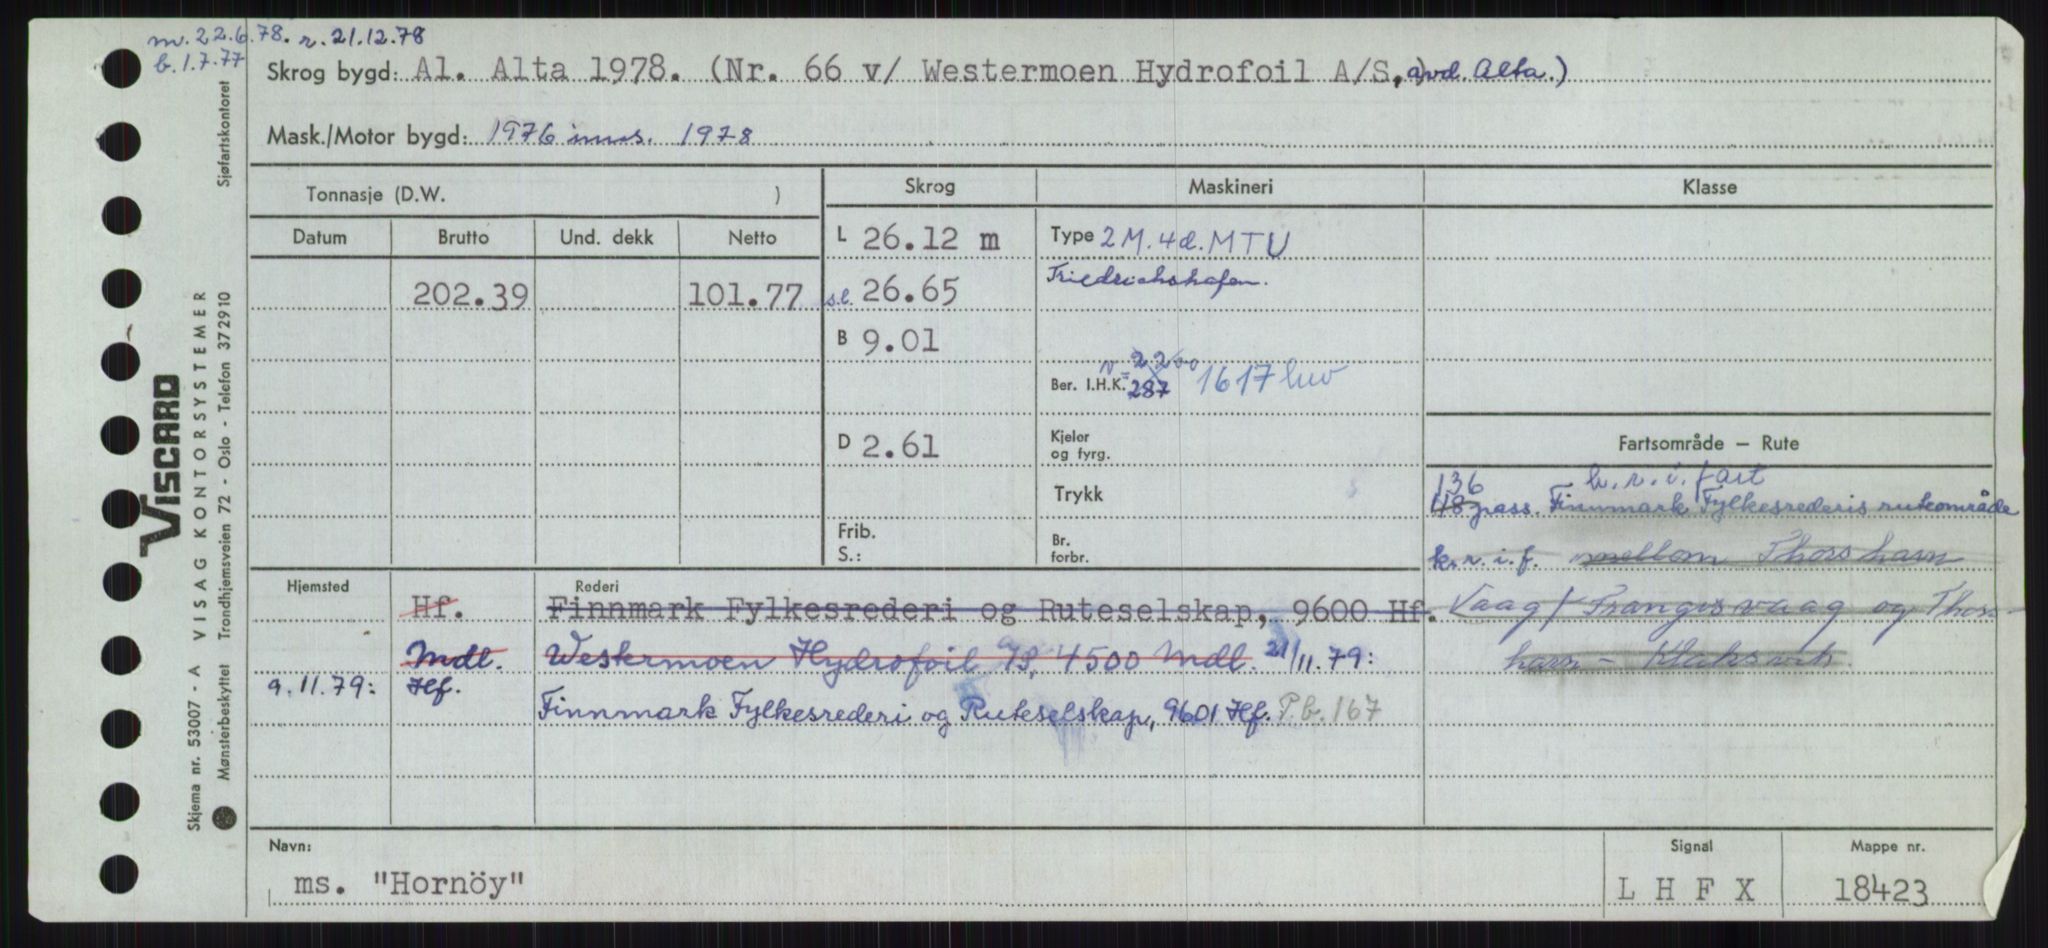 m. 22.6.78. r. 21.12.78
b. 1.7.77
Skrog bygd: Al. Alta 1978. (Nr. 66 v/ Westermoen Hydrofoil A/S, avd. Alta.)
Mask./Motor bygd: 1976 inns. 1978
Tonnasje (D.W. )
Skrog
Maskineri
Klasse
Datum
Brutto
Und. dekk
Netto
L 26.12 m
Type 2 M. 4d. MTU
Friedrichshafen.
202.39
101.77
s.l. 26.65
B 9.01
Ber. I.H.K. v = 2200
287
1617 hw
D 2.61
Kjeler
og fyrg.
Trykk
Frib.
S.:
Br.
forbr.
Fartsområde – Rute
136 k.r.i. fart
48 pass. Finnmark Fylkesrederis ruteområde
k.r.i.f. mellom Thorshavn
Vaag / Frangisvaag og Thors-
havn - Klaksvik.
Hjemsted
Rederi
Hf. Finnmark Fylkesrederi og Ruteselskap, 9600 Hf.
Mdl. Westermoen Hydrofoil A/S, 4500 Mdl. 21/11.79:
9.11.79: Hf.
Finnmark Fylkesrederi og Ruteselskap, 9601 Hf. P.b. 167
Navn:
ms. "Hornöy"
Signal
L H F X
Mappe nr.
18423
Sjøfartskontoret
VISCARD
Skjema nr. 53007 - A VISAG KONTORSYSTEMER
Mønsterbeskyttet Trondhjemsveien 72 - Oslo - Telefon 372910